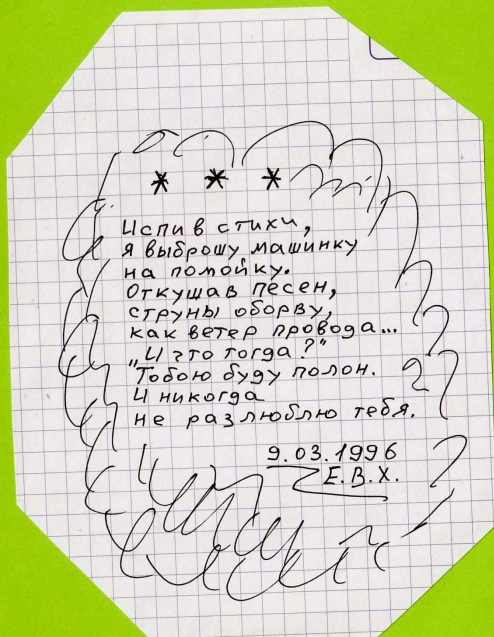 * * *
Испив стихи,
я выброшу машинку
на помойку.
Откушав песен,
струны оборву,
как ветер провода...
„И что тогда?"
Тобою буду полон.
И никогда
не разлюблю тебя.
9.03.1996
Е.В.Х.